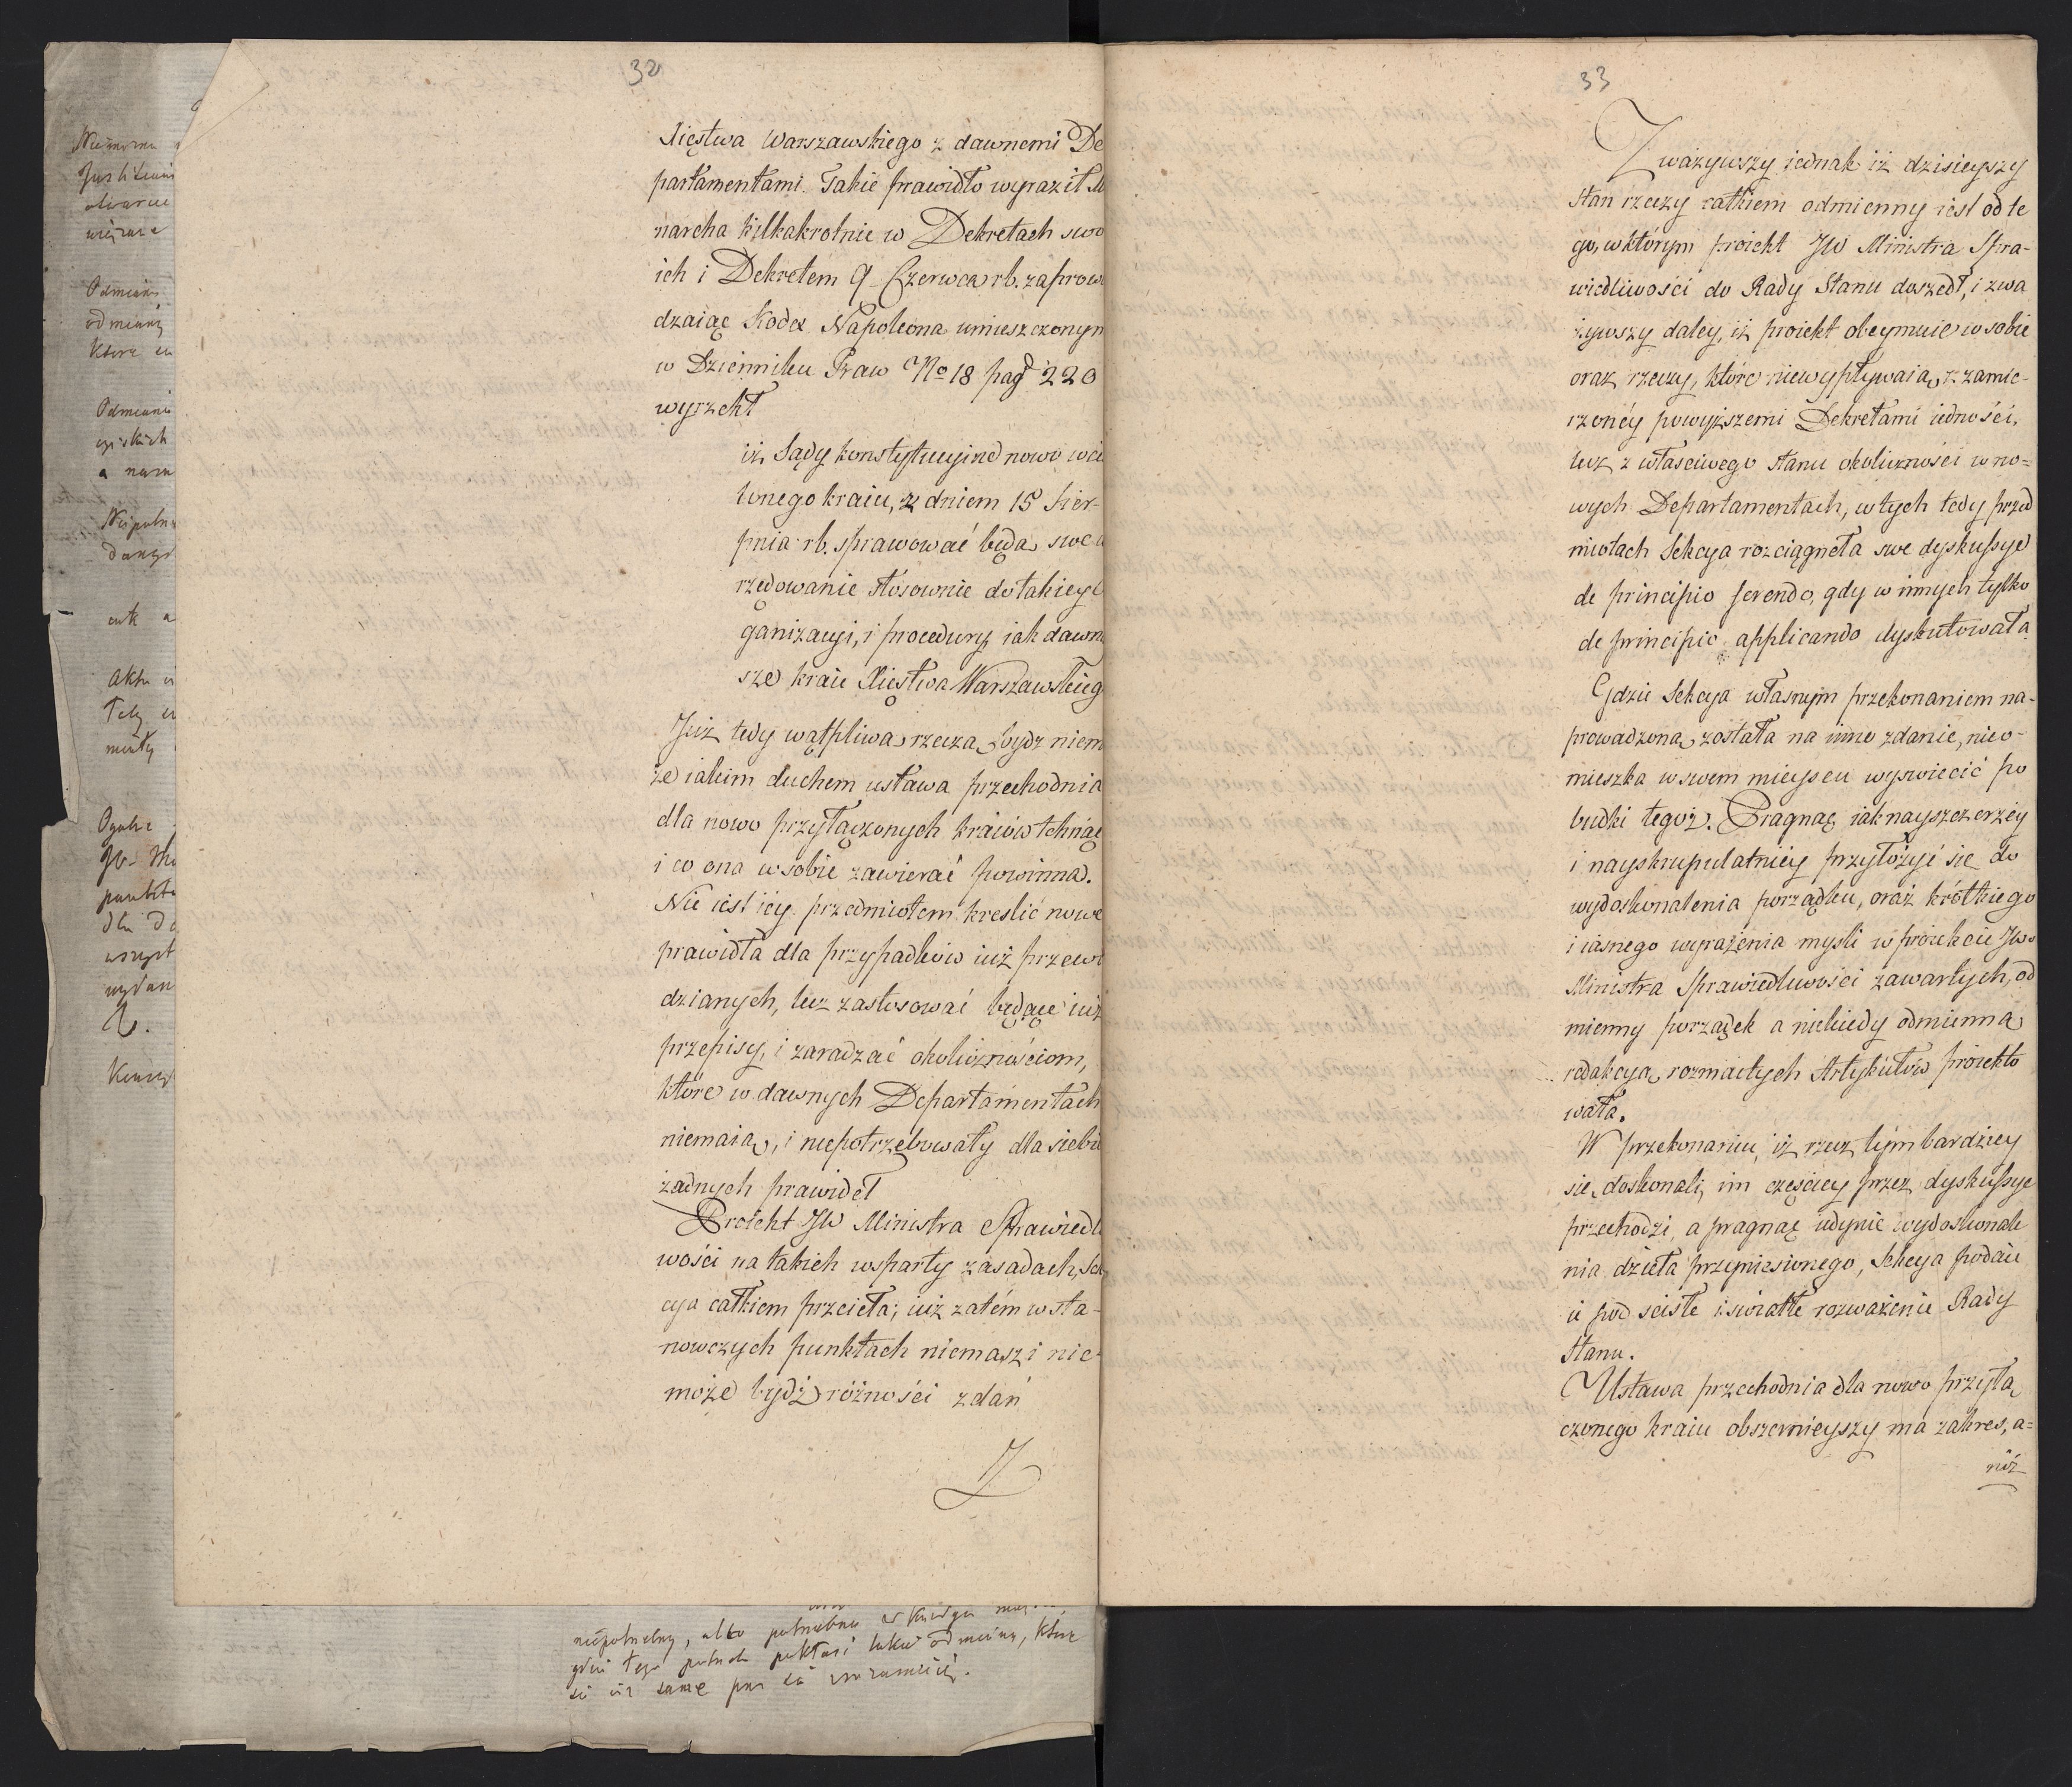 32
Xięstwa Warszawskiego z dawnemi De
partamentami. Takie prawidło wyraził M
narcha kilkakrotnie w Dekretach swo
ich i Dekretem 9 Czerwca rb. zaprow
dzaiąc Kodex Napoleona umieszczonym
w Dzienniku Praw No 18 pag 220
wyrzekł
iż Sądy konstytucyine nowo wcie
lonego kraiu, z dniem 15 Sier-
pnia rb. sprawować będą swe u
rzędowanie stosownie do takiey o
ganizacyi, i procedury, iak dawni
sze kraie Xięstwa Warszawskieg
Już tedy wątpliwą rzeczą bydź niem
że iakim duchem ustawa przechodnia
dla nowo przyłączonych kraiów tchnąć
i co ona w sobie zawierać powinna.
Nie iest iéy przedmiotem kreslić nowe
prawidła dla przypadków iuż przewi
dzianych, lecz zastosować będące iuż
przepisy, i zaradzać okolicznościom,
które w dawnych Departamentach
niemaią, i niepotrzebowały dla siebie
żadnych prawideł
Proiekt JW Ministra Sprawiedl
wości na takich wsparty zasadach, Sek
cya całkiem przeięła; iuż zatém w sta-
nowczych punktach niemasz i nie-
może bydź różności zdań
Z
33
Zważywszy iednak iż dzisieyszy
stan rzeczy całkiem odmienny iest od te
go, w którym proiekt JW Ministra Spra-
wiedliwości do Rady Stanu doszedł, i zwa
żywszy daley, iż proiekt obeymuie w sobie
oraz rzeczy, które niewypływaią z zamie-
rzonéy powyższemi Dekretami iedności,
lecz z właściwego stanu okoliczności w no=
wych Departamentach, w tych tedy przed
miotach Sekcya rozciągnęła swe dyskussye
de principio ferendo, gdy w innych tylko
de principio applicando dyskutowała
Gdzie Sekcya własnym przekonaniem na-
prowadzona została na inne zdanie, nieo-
mieszka w swem mieyscu wyswiecić po
budki tegoż. Pragnąc iaknayszczerzéy
i nayskrupulatniéy przyłożyć się do
wydoskonalenia porządku, oraz krótkiego
i iasnego wyrażenia mysli w proiekcie JW
Ministra Sprawiedliwości zawartych, od
mienny porządek a niekiedy odmienną
redakcyą rozmaitych Artykułów proiekto
wała.
W przekonaniu, iż rzecz tym bardziey
się doskonali, im częściey przez dyskussye
przechodzi, a pragnąc iedynie wydoskonale
nia dzieła przyniesionego, Sekcya podaie
ie pod scisłe i swiatłe rozważenie Rady
Stanu.
Ustawa przechodnia dla nowo przyłą
czonego kraiu obszernieyszy ma zakres, a=
niż